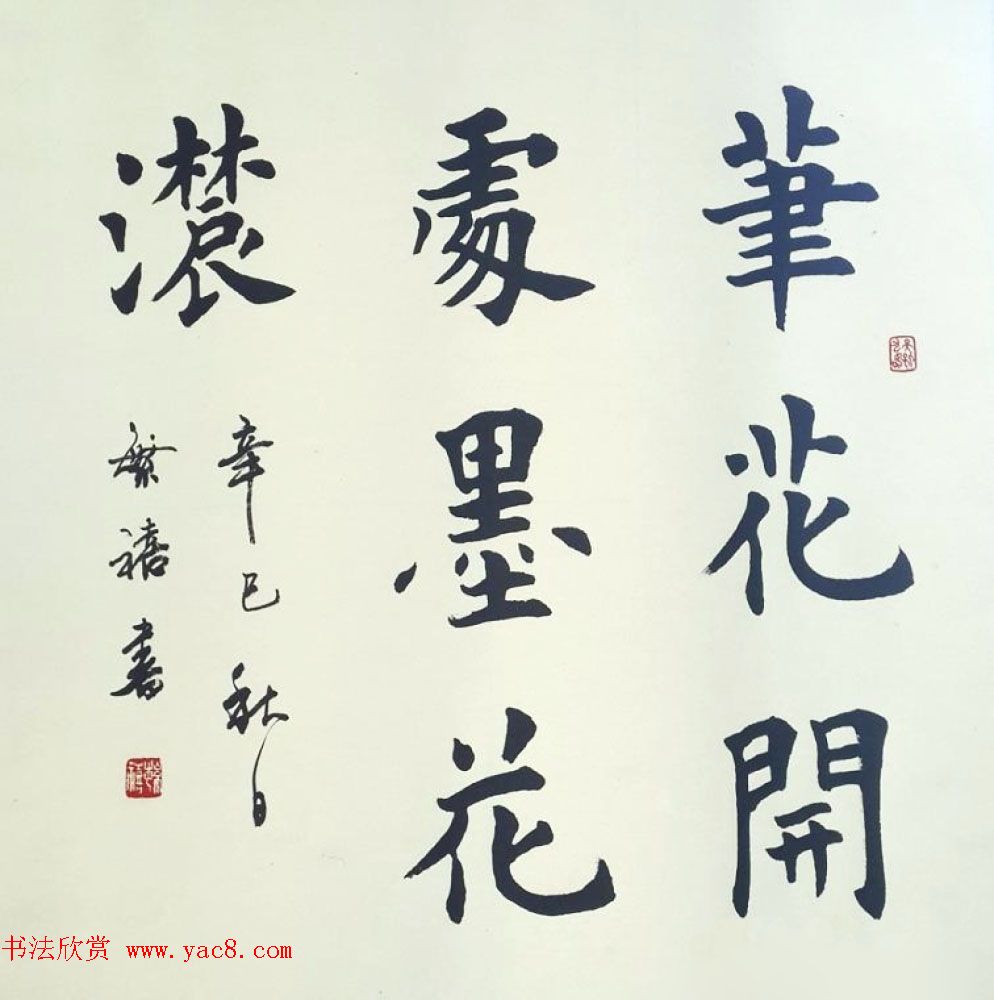 筆花開
處墨花
濃
辛巳秋日
繁禧書
书法欣赏 www.yac8.com